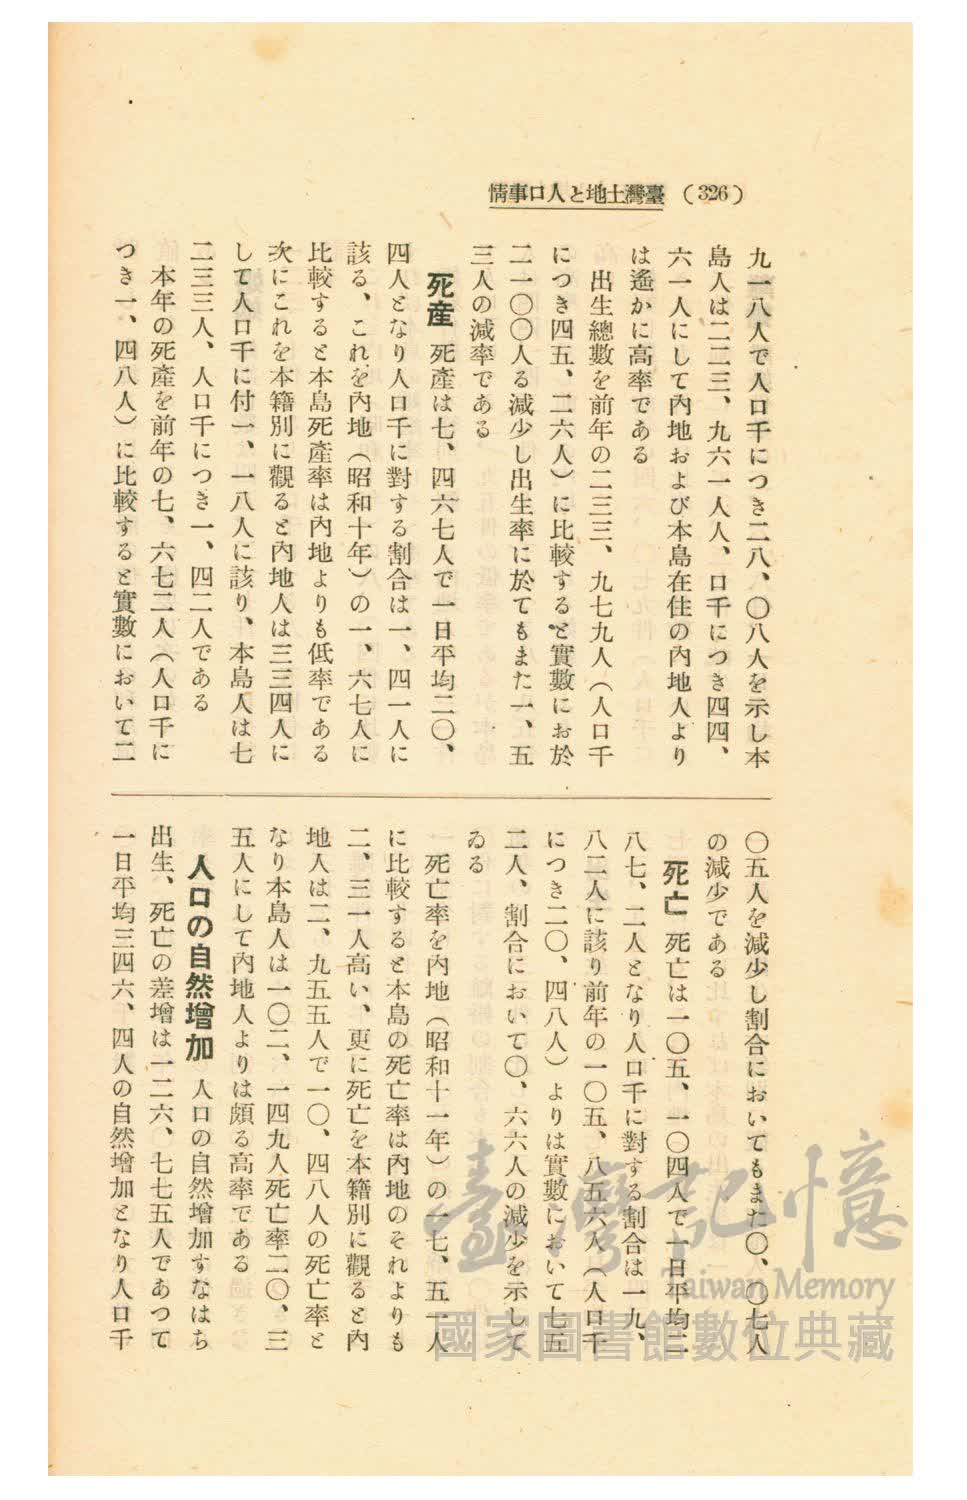 臺灣土地と人口事情 (326)
九一八人で人口千につき二八、〇八人を示し本
島人は二二三、九六一人人、口千につき四四、
六一人にして內地および本島在住の內地人より
は遙かに高率である
出生總數を前年の二三三、九七九人（人口千
につき四五、二六人）に比較すると實數にお於
二一〇〇人る減少し出生率に於てもまた一、五
三人の減率である
死産 死產は七、四六七人で一日平均二〇、
四人となり人口千に對する割合は一、四一人に
該る、これを內地（昭和十年）の一、六七人に
比較すると本島死產率は內地よりも低率である
次にこれを本籍別に觀ると內地人は三三四人に
して人口千に付一、一八人に該り、本島人は七
二三三人、人口千につき一、四二人である
本年の死產を前年の七、六七二人（人口千に
つき一、四八人）に比較すると實數において二
〇五人を減少し割合においてもまた〇、〇七人
の減少である
死亡 死亡は一〇五、一〇四人で一日平均二
八七、二人となり人口千に對する割合は一九、
八二人に該り前年の一〇五、八五六人（人口千
につき二〇、四八人）よりは實數において七五
二人、割合において〇、六六人の減少を示して
ゐる
死亡率を內地（昭和十一年）の一七、五一人
に比較すると本島の死亡率は內地のそれよりも
二、三一人高い、更に死亡を本籍別に觀ると內
地人は二、九五五人で一〇、四八人の死亡率と
なり本島人は一〇二、一四九人死亡率二〇、三
五人にして內地人よりは頗る高率である
人口の自然增加 人口の自然增加すなはち
出生、死亡の差增は一二六、七七五人であつて
一日平均三四六、四人の自然增加となり人口千
臺灣記憶
Taiwan Memory
國家圖書館數位典藏